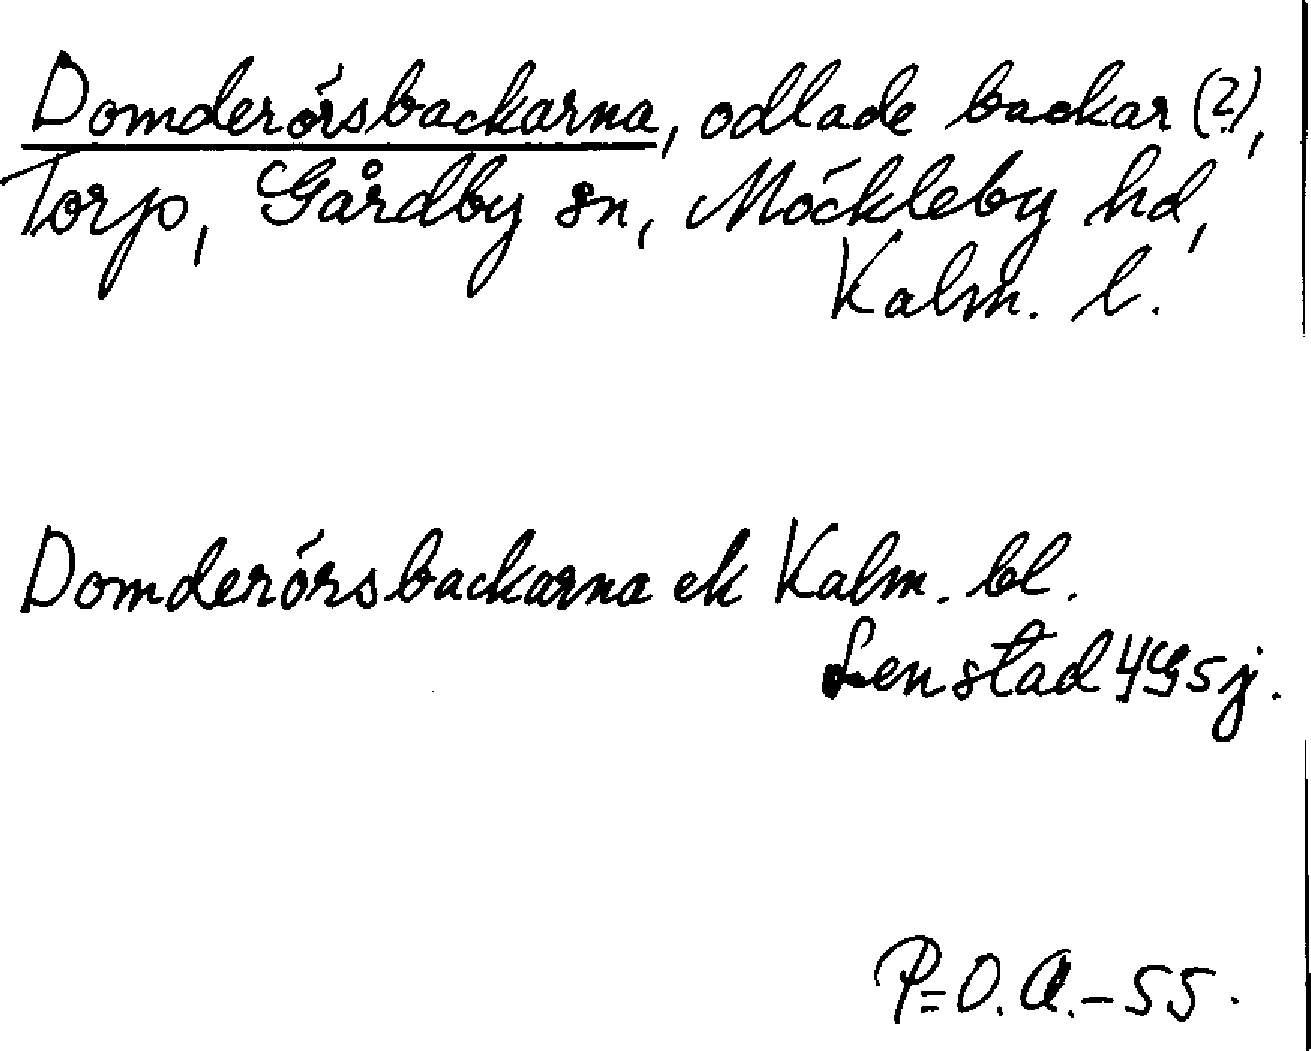 Domderörsbackarna, odlade backar (?),
Torp, Gårdby sn, Möckleby hd,
Kalm. l.
Domderörsbackarna ek Kalm. bl.
Lenstad 4G5j.
P=O.A.-55.